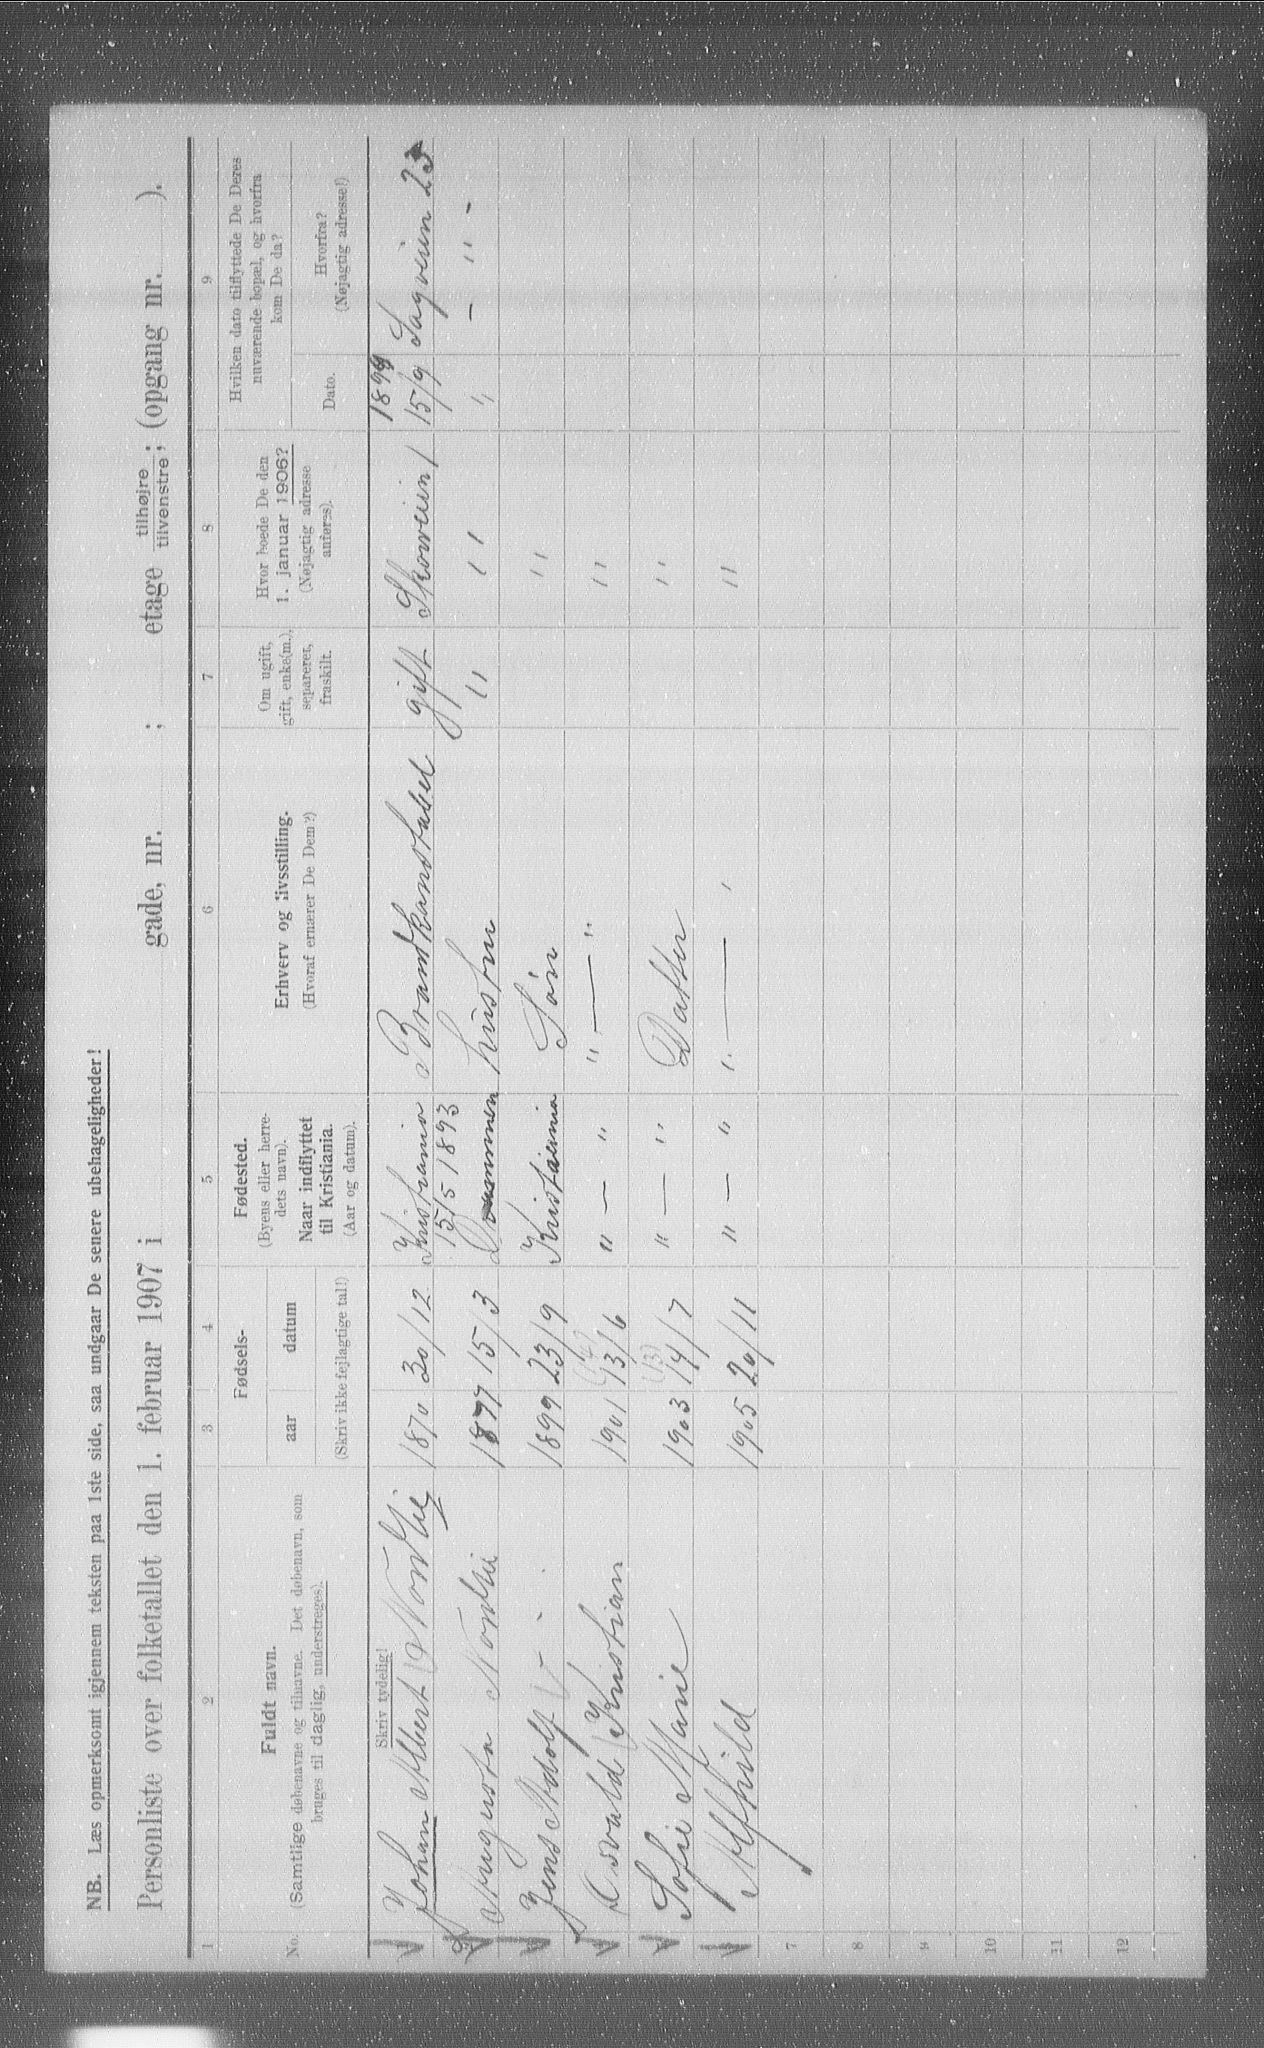 NB. Læs opmerksomt igjennem teksten paa 1ste side, saa undgaar De senere ubehageligheder!
Personliste over folketallet den 1. februar 1907 i gade, nr. ; etage tilhøjre tilvenstre; (opgang nr. ).
1 2 3 4 5 6 7 8 9
No.
Fuldt navn.
(Samtlige døbenavne og tilnavne. Det døbenavn, som
bruges til daglig, understreges).
Fødsels-
aar datum
(Skriv ikke fejlagtige tal!)
Fødested.
(Byens eller herre-
dets navn).
Naar indflyttet
til Kristiania.
(Aar og datum).
Erhverv og livsstilling.
(Hvoraf ernærer De Dem?)
Om ugift,
gift, enke(m.),
separeret,
fraskilt.
Hvor boede De den
1. januar 1906?
(Nøjagtig adresse
anføres).
Hvilken dato tilflyttede De Deres
nuværende bopæl, og hvorfra
kom De da?
Dato.
Hvorfra?
(Nøjagtig adresse!)
Skriv tydelig!
1899
Johan Albert Nordlie 1870 30/12 Kristiania Brandkonstabel gift Skovveien 1 15/9 Sagveien 23
15/5 1893
Augusta Nordlie 1877 15/3 Drammen hustru " " " — " -
Jens Adolf 1899 23/9 Kristiania Søn "
Osvald Kristian 1901 13/6 " — " " — " "
(13)
Sofie Marie 1903 14/7 " — " Datter "
Alfhild 1905 20/11 " — " " — "
7
8
9
10
11
12